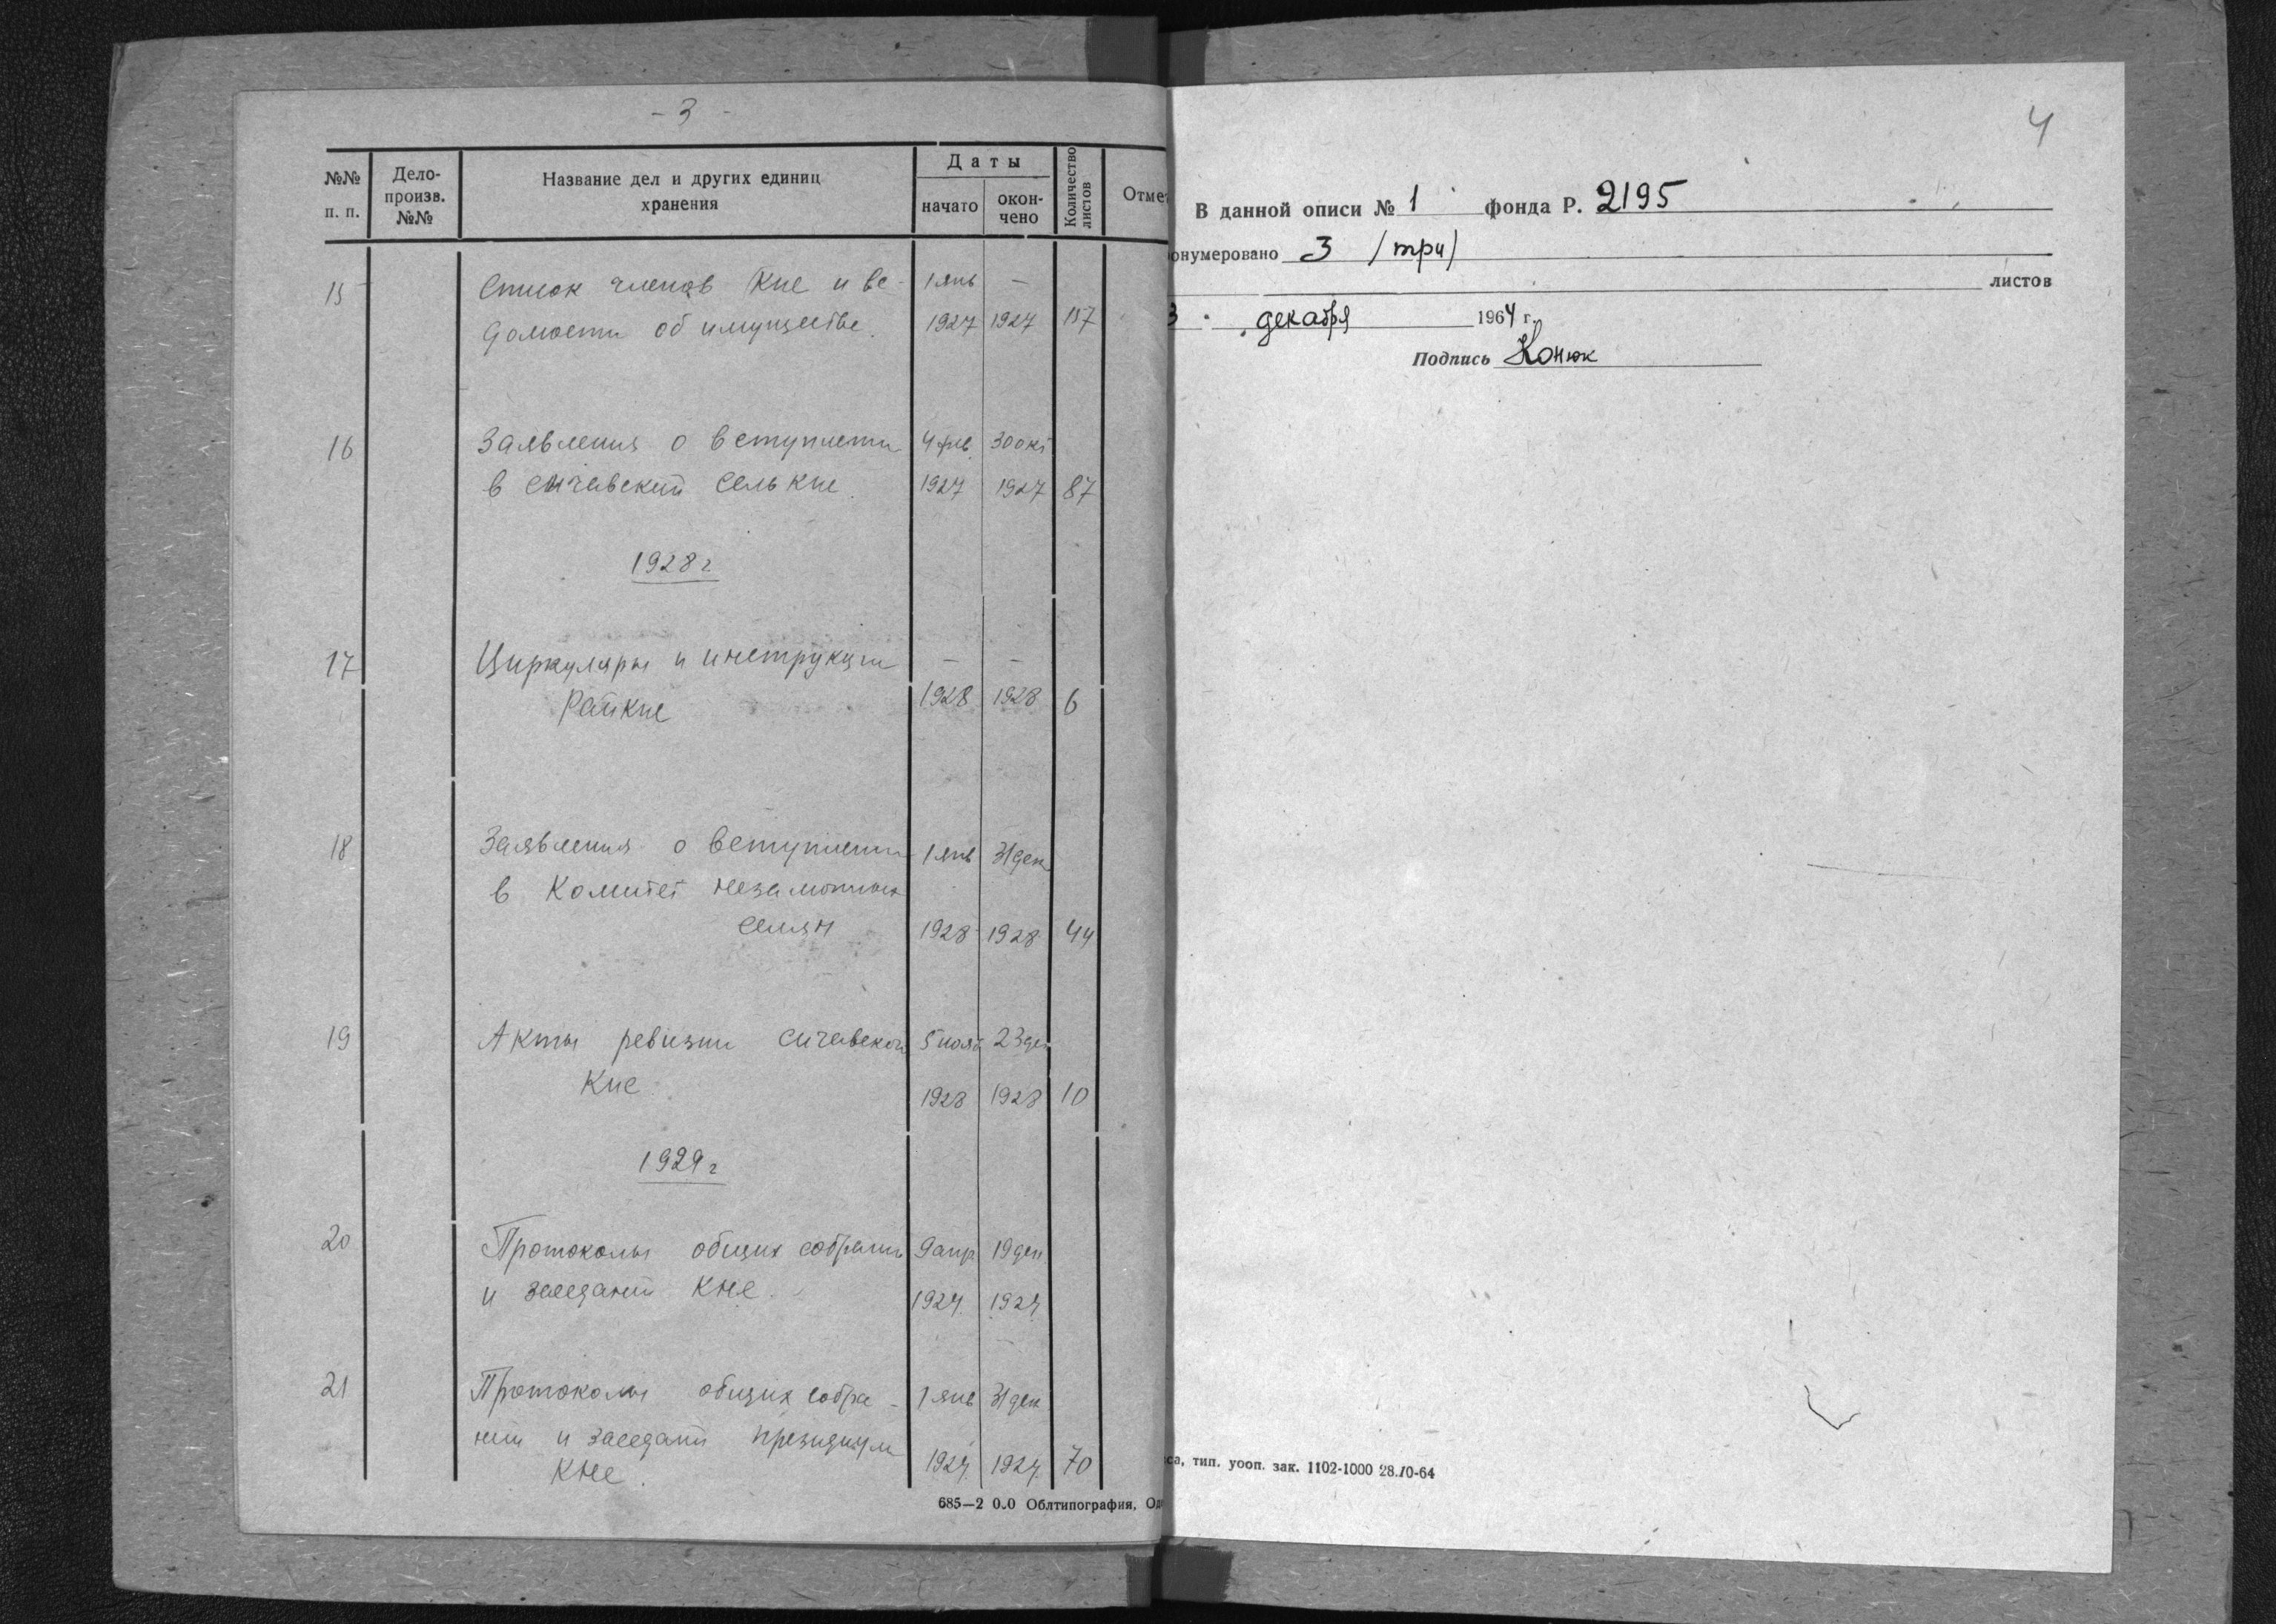 - 3 -
№№ п. п.
Дело-произв. №№
Название дел и других единиц хранения
Даты
начато
окон-чено
Количество листов
Отме
15 Список членов Кнс и ве- 1 янв —
домости об имуществе. 1927 1927 157
16 Заявления о вступлении 4 янв 30 окт
в Сичавский сель Кнс. 1927 1927 87
1928 г
17 Циркуляры и инструкции — —
РайКнс 1928 1928 6
18 Заявления о вступлении 1 янв 31 дек
в Комитет незаможных
селян 1928 1928 44
19 Акты ревизии Сичавской 5 нояб 23 де
Кнс 1928 1928 10
1929 г
20 Протоколы общих собраний 9 апр 19 дек
и заседаний КНС. 1924 1924
21 Протоколы общих собра- 1 янв 31 дек
ний и заседаний президиума
КНС. 1924 1924 70
685—2 0.0 Облтипография, Од
4
В данной описи № 1 фонда Р. 2195
онумеровано 3 /три/
листов
3 декабря 1964 г.
Подпись Конюк
са, тип. уооп. зак. 1102-1000 28.10-64